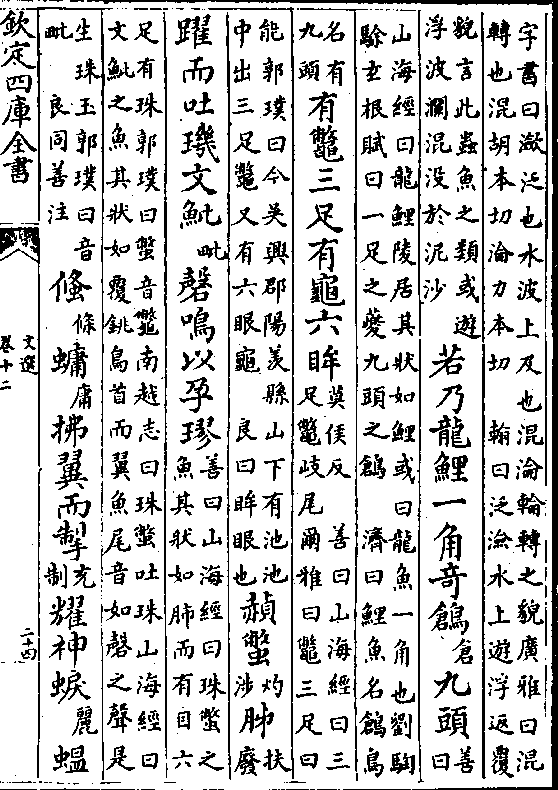 字書曰潎泛也水波上及也混淪輪轉之貌廣雅曰混
轉也混胡本切淪力本切 翰曰泛淪水上遊浮返覆
貌言此蟲魚之類或遊
浮波瀾混没於泥沙
若乃龍鯉一角奇鶬倉九頭善曰
山海經曰龍鯉陵居其狀如鯉或曰龍魚一角也劉騊
駼玄根賦曰一足之夔九頭之鶬 濟曰鯉魚名鶬鳥
名有
九頭
有鼈三足有龜六眸
莫侯反 善曰山海經曰三
足鼈岐尾 爾雅曰鼈三足曰
能郭璞曰今吳興郡陽羨縣山下有池池
中出三足鼈又有六眼龜 良曰眸眼也
赬蟞灼涉胏扶廢
躍而吐璣文魮毗磬鳴以孕璆
善曰山海經曰珠蟞之
魚其狀如肺而有目六
足有珠郭璞曰蟞音鼈南越志曰珠蟞吐珠山海經曰
文魮之魚其狀如覆銚鳥首而翼魚尾音如磬之聲是
生珠玉郭璞曰音
毗 良同善注
鯈條䗤庸拂翼而掣充制耀神蜧麗蝹
欽定四庫全書
文選
卷十二
二十四